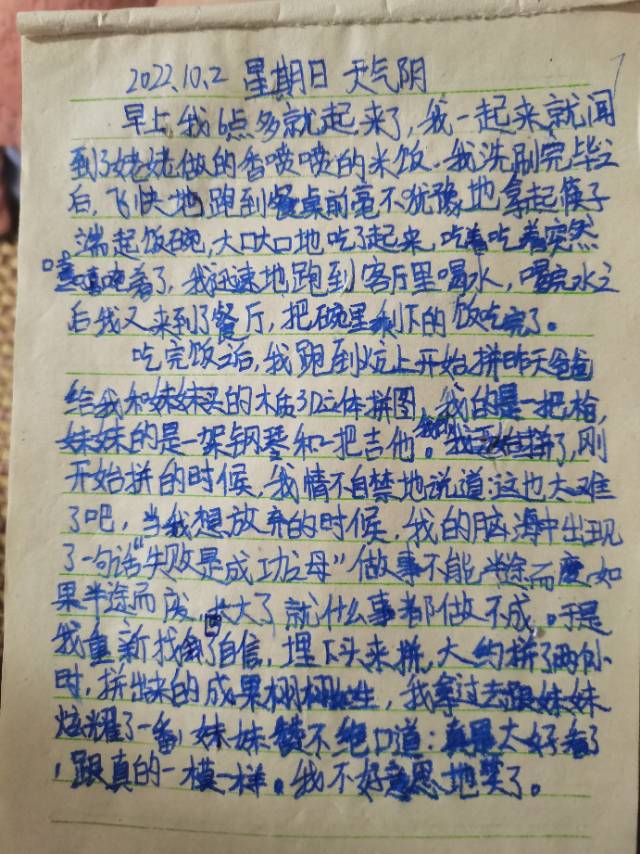 2022.10.2 星期日 天气阴
早上我6点多就起来了,我一起来就闻
到了姥姥做的香喷喷的米饭.我洗刷完毕之
后,飞快地跑到餐桌前毫不犹豫地拿起筷子
端起饭碗,大口大口地吃了起来,吃着吃着突然
着了,我迅速地跑到客厅里喝水,喝完水之
后我又来到了餐厅,把碗里剩下的饭吃完了。
吃完饭之后,我跑到炕上开始拼昨天爸爸
给我和妹妹买的木质3D立体拼图,我的是一把枪,
妹妹的是一架钢琴和一把吉他。拼了,刚
开始拼的时候,我情不自禁地说道:这也太难
了吧,当我想放弃的时候,我的脑海中出现
了一句话“失败是成功之母”做事不能半途而废,如
果半途而废,长大了就什么事都做不成。于是
我重新找回了自信,埋下头来拼,大约拼了两小
时,拼出来的成果栩栩如生,我拿过去跟妹妹
炫耀了一番,妹妹赞不绝口道:真是太好看了
,跟真的一模一样。我不好意思地笑了。